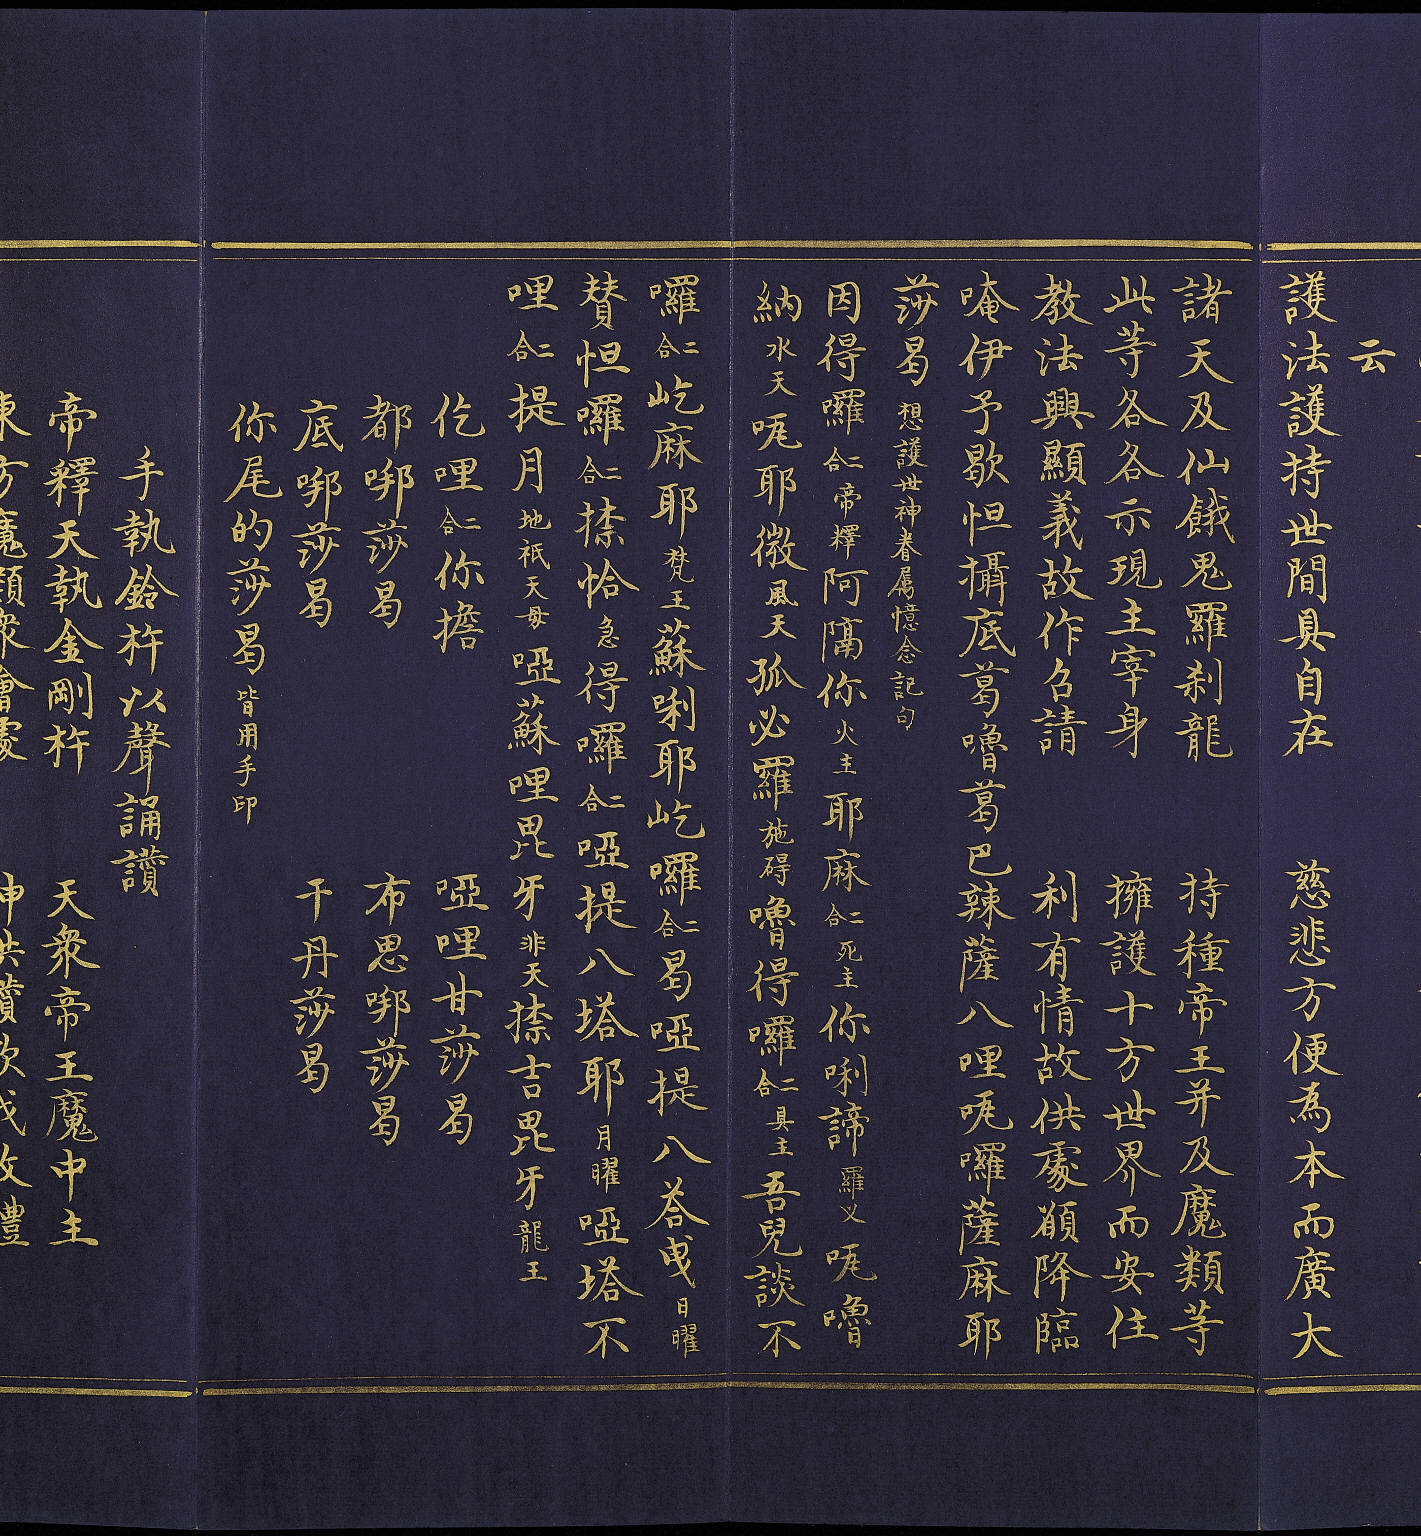 云
護法護持世間具自在 慈悲方便為本而廣大
諸天及仙餓鬼羅刹龍 持種帝王并及魔類等
此等各各示現主宰身 擁護十方世界而安住
教法興顯義故作召請 利有情故供處願降臨
唵伊予歇怛攝底葛嚕葛巴辣薩八哩𠰒囉薩麻耶
莎曷想護世神眷属憶念記句
因得囉二合帝釋阿隔你火主耶麻二合死主你唎諦羅义𠰒嚕
納水天𠰒耶微風天孤必羅施碍嚕得囉二合具主吾兒談不
囉二合屹麻耶梵王蘇唎耶屹囉二合曷啞提八荅曳日曜
賛怛囉二合捺恰急得囉二合啞提八塔耶月曜啞塔不
哩二合提月地祇天母啞蘇哩毘牙非天捺吉毘牙龍王
仡哩二合你擔 啞哩甘莎曷
都㖿莎曷 布思㖿莎曷
底㖿莎曷 干丹莎曷
你尾的莎曷皆用手印
手執鈴杵以聲誦讚
帝釋天執金剛杵 天衆帝王魔中主
東方魔類衆會處 神供讚歎我故禮